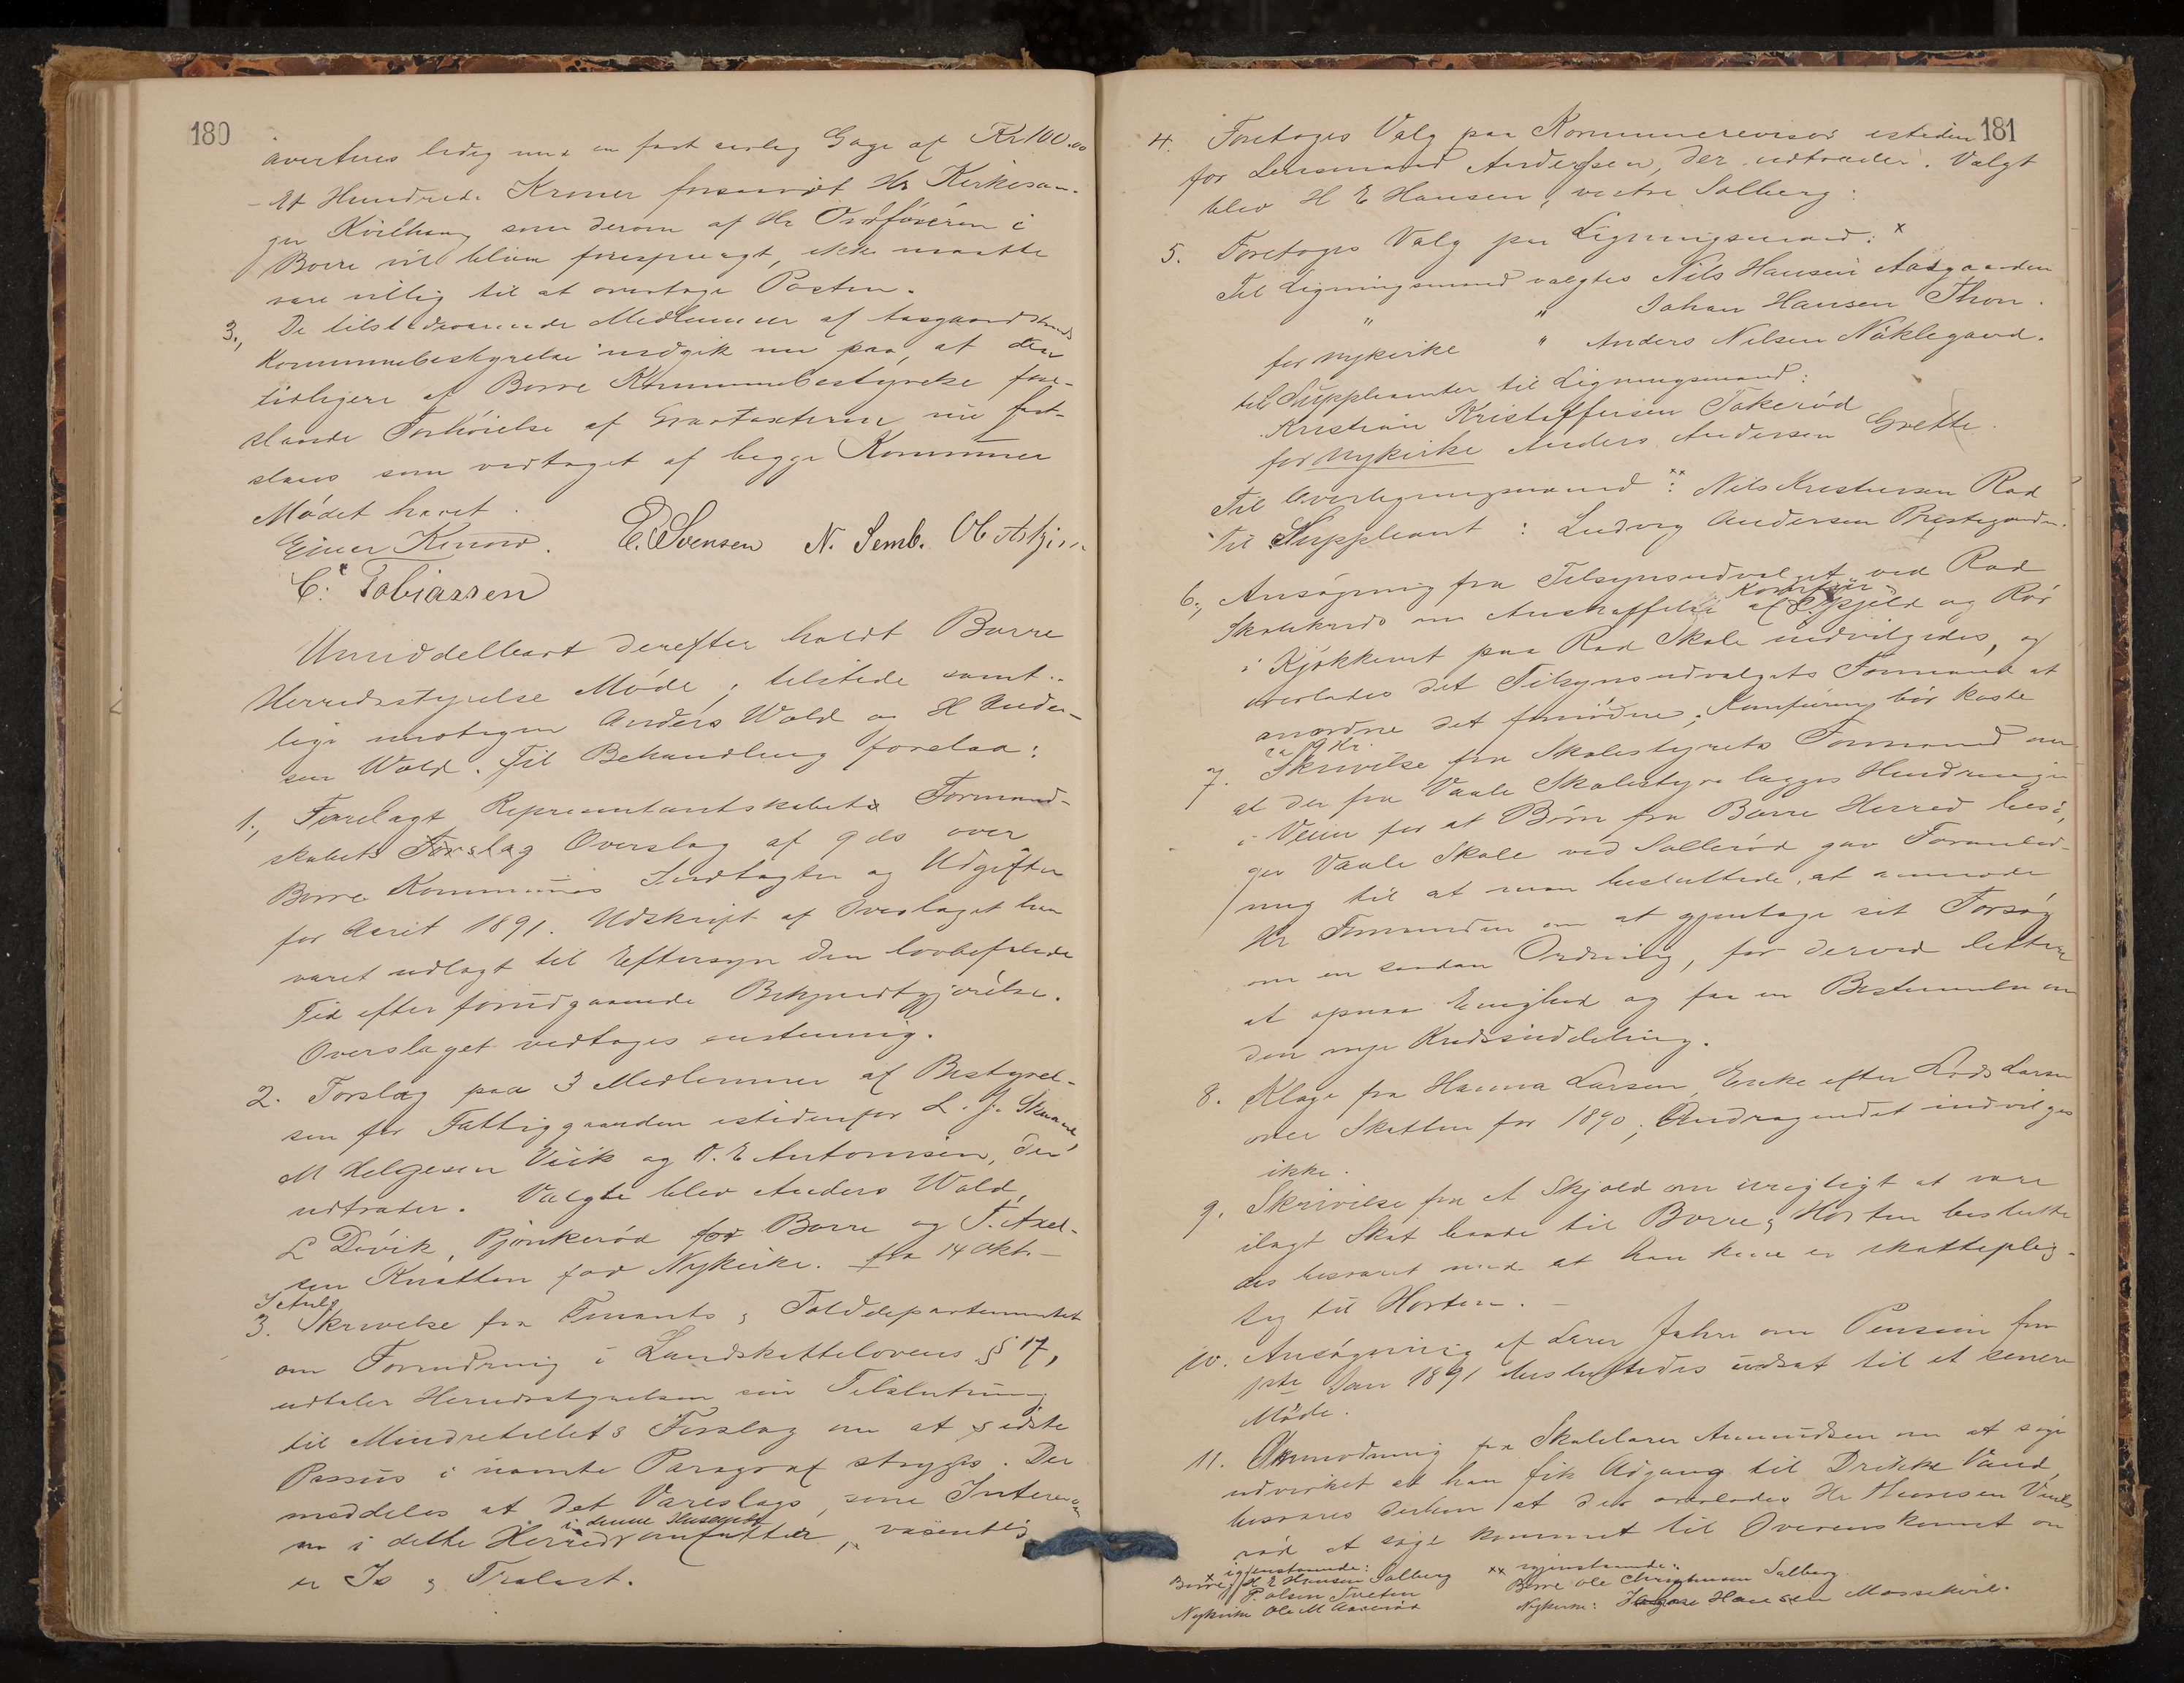 180
averteres ledig med en fast aarlig Gage af Kr 100.00
- Et Hundrede Kroner forsaavidt Hr Kirkesan-
ger som derom af Hr Ordføreren i
Borre vil blive forespurgt, ikke maatte
være villig til at overtage Posten.
3., De tilstedeværende Medlemmer af Aasgaardstrands
Kommunebestyrelse indgik nu paa, at den
tidligere af Borre Kommunebestyrelse fore-
slaaede Forhøielse af nu fast-
slaaes som vedtaget af begge Kommuner
Mødet hævet.
E. Svensen N. Semb.
C. Tobiassen
Umiddelbart derefter holdt Borre
Herredsstyrelse Møde; tilstede samt-
lige undtagen Anders Wold og H Ander-
sen Wold. Til Behandling forelaa:
1., Forelagt Repræsentantskabets Formand-
skabets Forslag Overslag af 9 ds over
Borre Kommunes Indtægter og Udgifter
for Aaret 1891. Udskrift af Overslaget har
været udlagt til Eftersyn den lovbefalede
Tid efter forudgaaende Bekjendtgjørelse.
Overslaget vedtoges enstemmig.
2. Forslag paa 3 Medlemmer af Bestyrel-
sen for Fattiggaarden istedenfor L. J.
M Helgesen Viik og O. E Antonisen, der
udtræder. Valgte blev Anders Wold,
L Døvik, Bjønkerød for Borre og F. Axel-
sen Knatten for Nykirke. fra 14 Okt. -
3. Skrivelse fra Finants & Tolddepartementet
om Forandring i Landskattelovens § 17,
udtaler Herredsstyrelsen sin Tilslutning
til Mindretallets Forslag om at sidste
Passus i nævnte Paragraf stryges. Der
meddeles at det Vareslags, som Interessen
i denne Henseende
en i dette Herred omfatter, væsentlig
er Is & Trælast.
181
4. Foretoges Valg paa Kommunerevisor isteden
for Lensmand Anderssen, der udtræder. Valgt
blev H E Hansen, vestre Solberg.
5. Foretoges Valg paa Ligningsmænd: x
Til Ligningsmænd valgtes Nils Hansen Aasgaarden
" " Johan Hansen Thon.
for Nykirke " Anders Nilsen Nøklegaard.
til Suppleanter til Ligningsmænd:
Kristian Kristoffersen Takerød
for Nykirke Anders Andersen Grette.
Til Overligningsmænd xx: Nils Kristensen Rød
Til Suppleant : Ludvig Andersen Prestegaarden.
6., Ansøgning fra Tilsynsudvalget ved Rød
Skolekreds om Anskaffelse af Spjeld og Rør
i Kjøkkenet paa Rød Skole indvilgedes, og
overlades det Tilsynsudvalgets Formand at
anordne det fornødne; Komfuren bør koste
ca
7. Skrivelse fra Skolestyrets Formand om
at der fra Vaale Skolestyre lægges Hindringer
i Veien for at Børn fra Borre Herred besø-
ger Vaale Skole ved Sollerød gav Foranled-
ning til at man besluttede, at anmode
Hr Formanden om at gjentage sit Forsøg
om en saadan Ordning, for derved lettere
at opnaa Enighed og faa en Bestemmelse om
den nye Kredsinddeling.
8. Klage fra Hanna Larsen, Enke efter Larsen
over Skatten for 1890; Andragendet indvilges
ikke.
9. Skrivelse fra A Skjold om urigtigt at være
ilagt Skat baade til Borre & Horten beslutte
des besvaret med at han kun er skatteplig-
tig til Horten. -
10. Ansøgning af Lærer Jahre om Pension fra
1ste Jan 1891 besluttedes udsat til et senere
Møde.
11. Anmodning fra Skolelærer Amundsen om at søge
udvirket at han fik Adgang til Drikke Vand
besvares derhen at det overlades Hr
rød at søge kommet til Overenskomst om
x igjenstaaende:
Borre: H E Hansen Solberg
P. Olsen Tveten
Nykirke Ole M Aaserød
xx igjenstaaende:
Borre Ole Christensen Solberg
Nykirke: Hansen